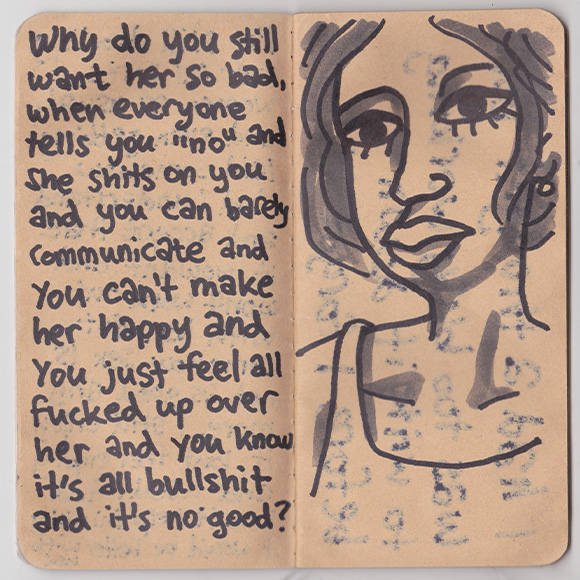 Why do you still
want her so bad,
when everyone
tells you "no" and
she shits on you
and you can barely
communicate and
you can't make
her happy and
You just feel all
fucked up over
her and you know
it's all bullshit
and it's no good?